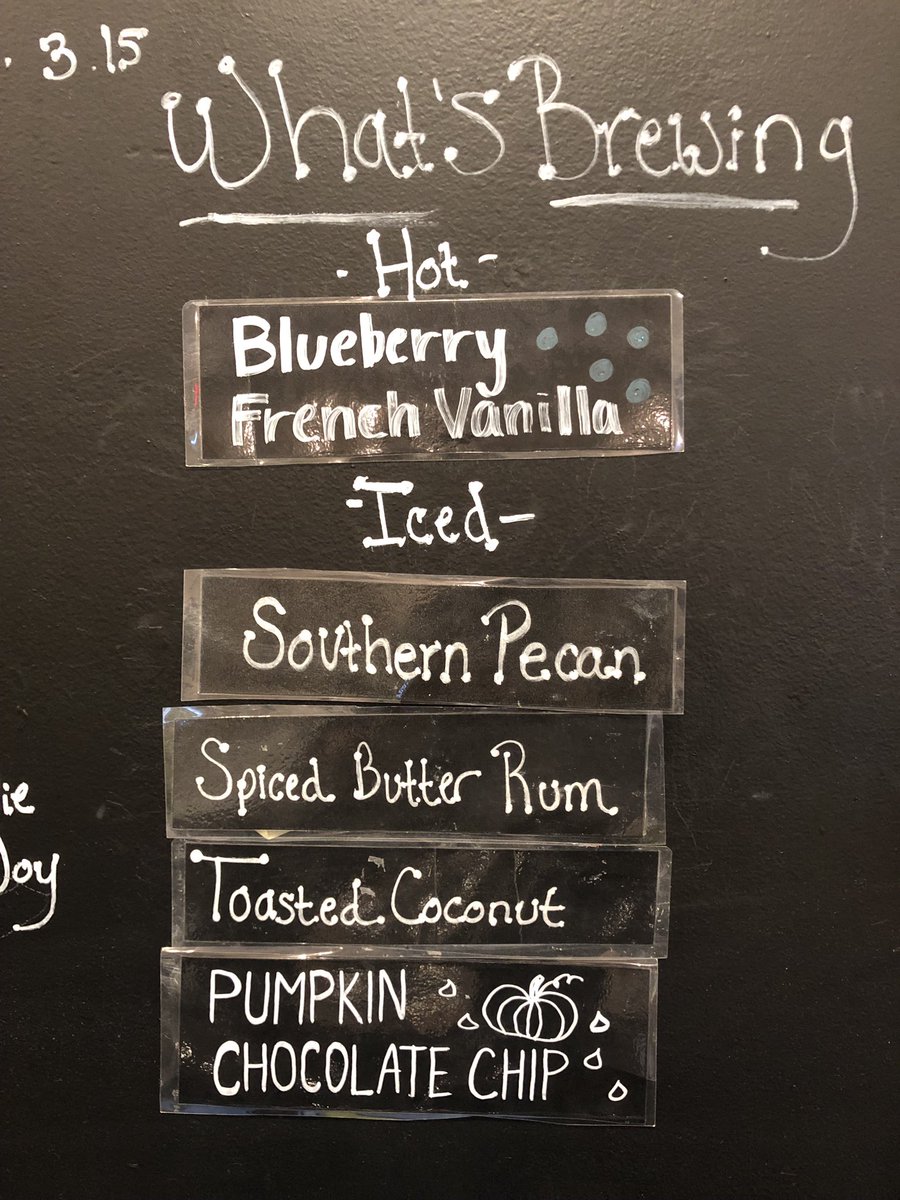 . 3.15
What's Brewing
- Hot -
Blueberry
French Vanilla
- Iced -
Southern Pecan
Spiced Butter Rum
Toasted Coconut
PUMPKIN
CHOCOLATE CHIP
ie
Joy